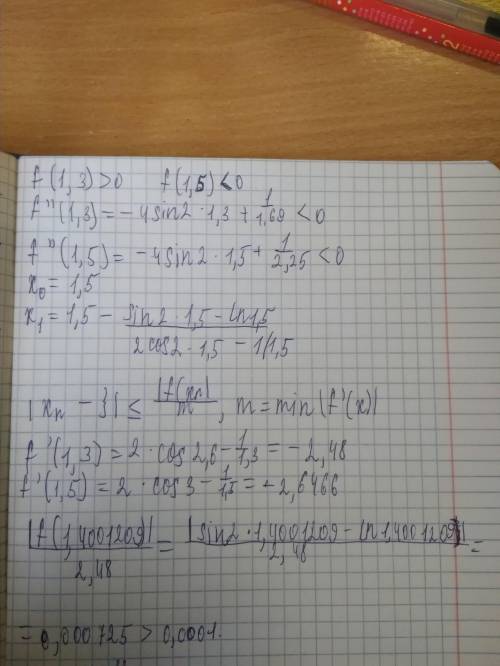 f(1,3)>0 f(1,5)<0
f"(1,3)=-4sin2·1,3+1/1,69<0
f"(1,5)=-4sin2·1,5+1/2,25<0
x₀=1,5
x₁=1,5-(sin2·1,5-ln1,5)/(2cos2·1,5-1/1,5)
|xₙ-ξ|≤|f(xₙ)|/m, m=min|f'(x)|
f'(1,3)=2·cos2,6-1/1,3=-2,48
f'(1,5)=2·cos3-1/1,5=-2,6466
|f(1,4001209)|/2,48=|sin2·1,4001209-ln1,4001209|/2,48=
=0,000725>0,0001.